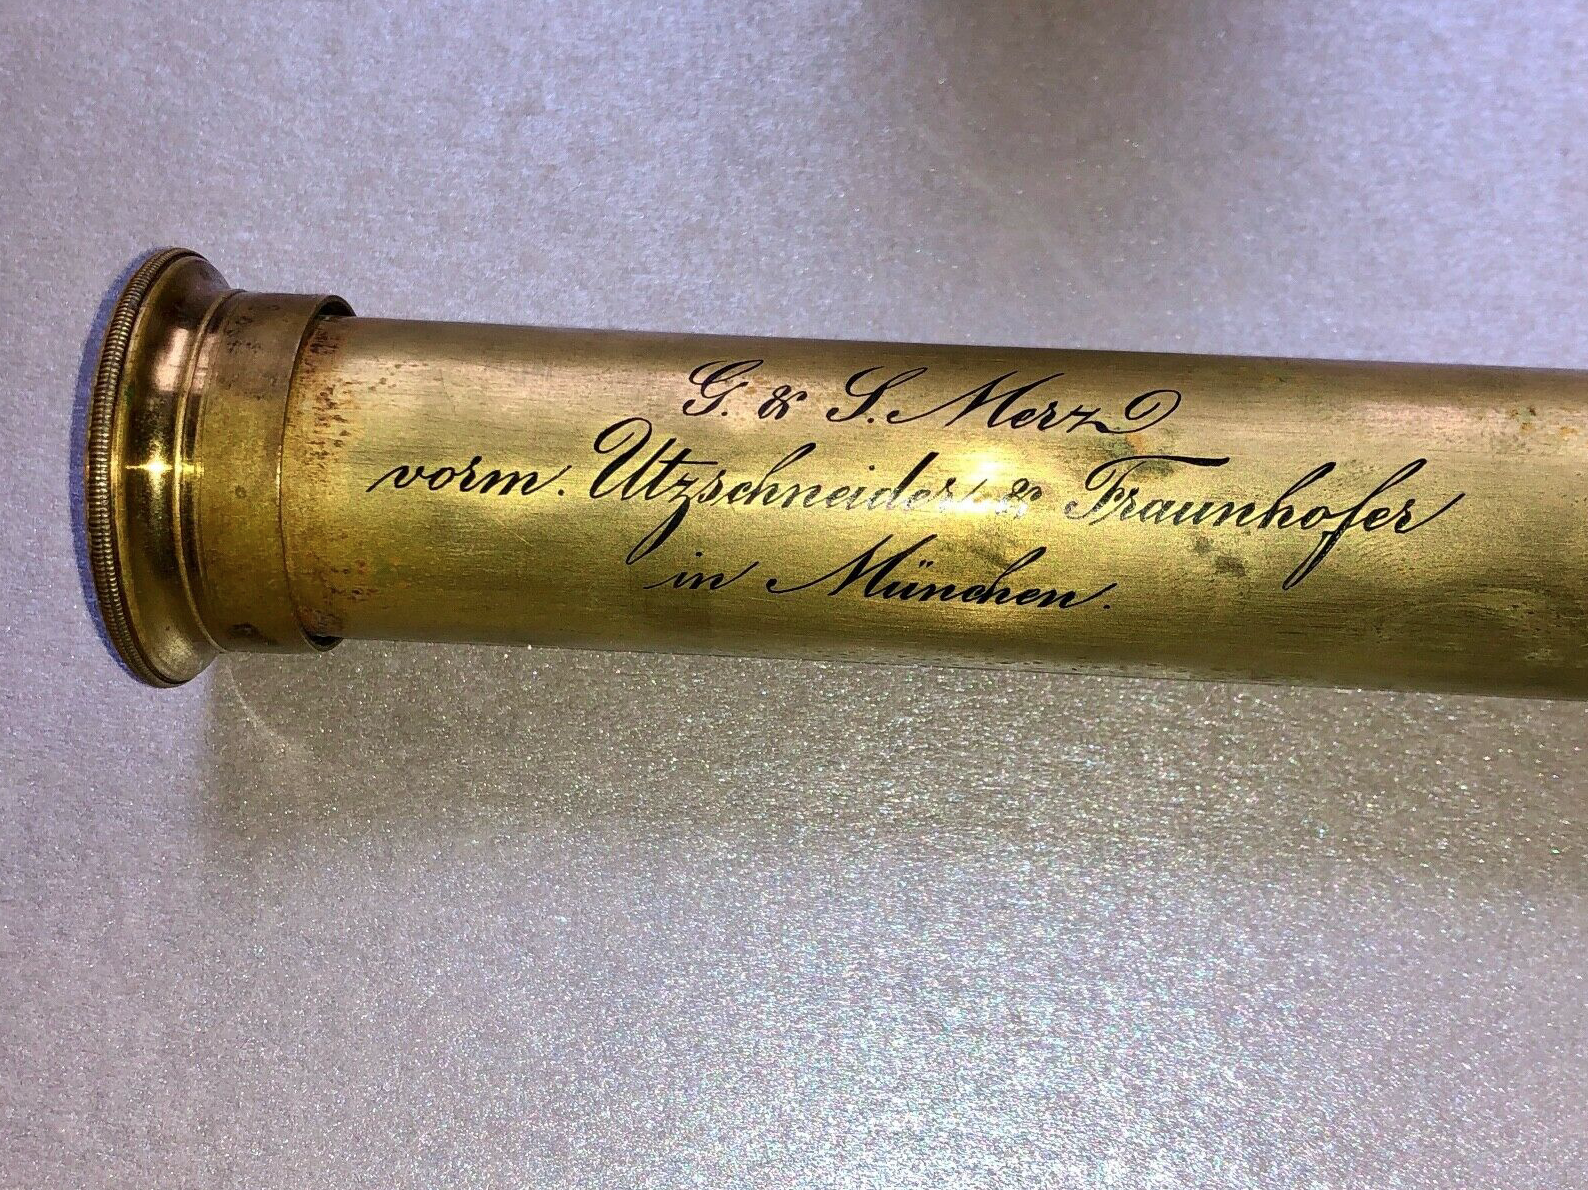 G. & S. Merz
vorm. Utzschneider & Fraunhofer
in München.